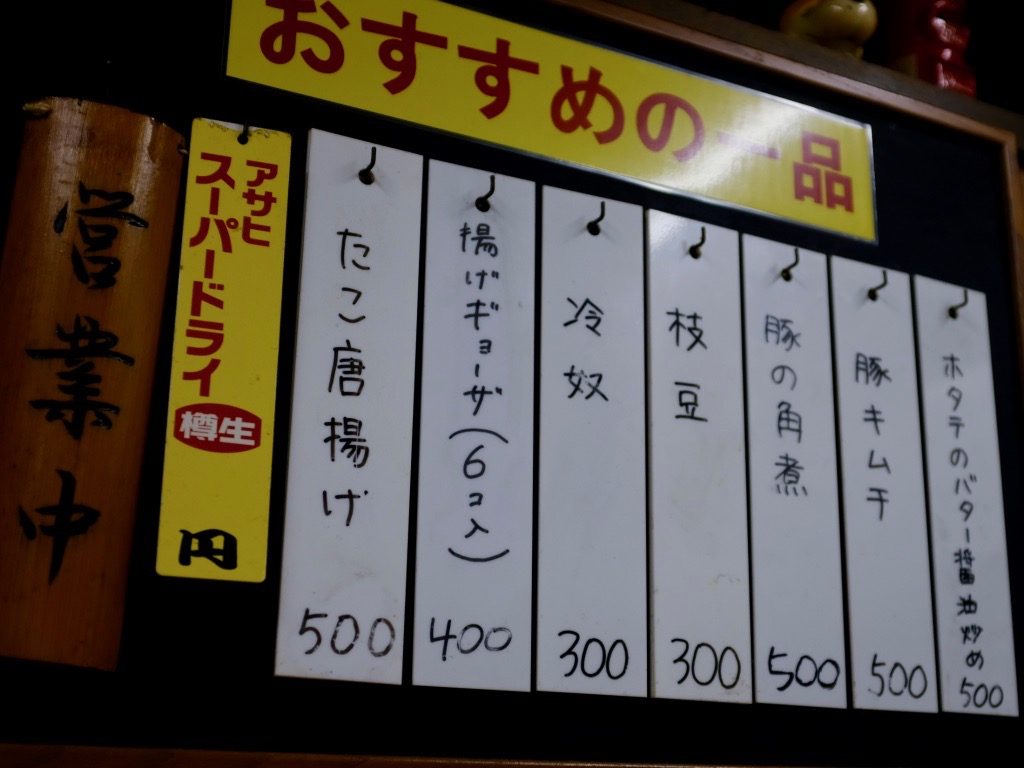 おすすめの一品
営業中
アサヒ
スーパードライ
樽生
円
たこ唐揚げ
500
揚げギョーザ(6コ入)
400
冷奴
300
枝豆
300
豚の角煮
500
豚キムチ
500
ホタテのバター醤油炒め
500